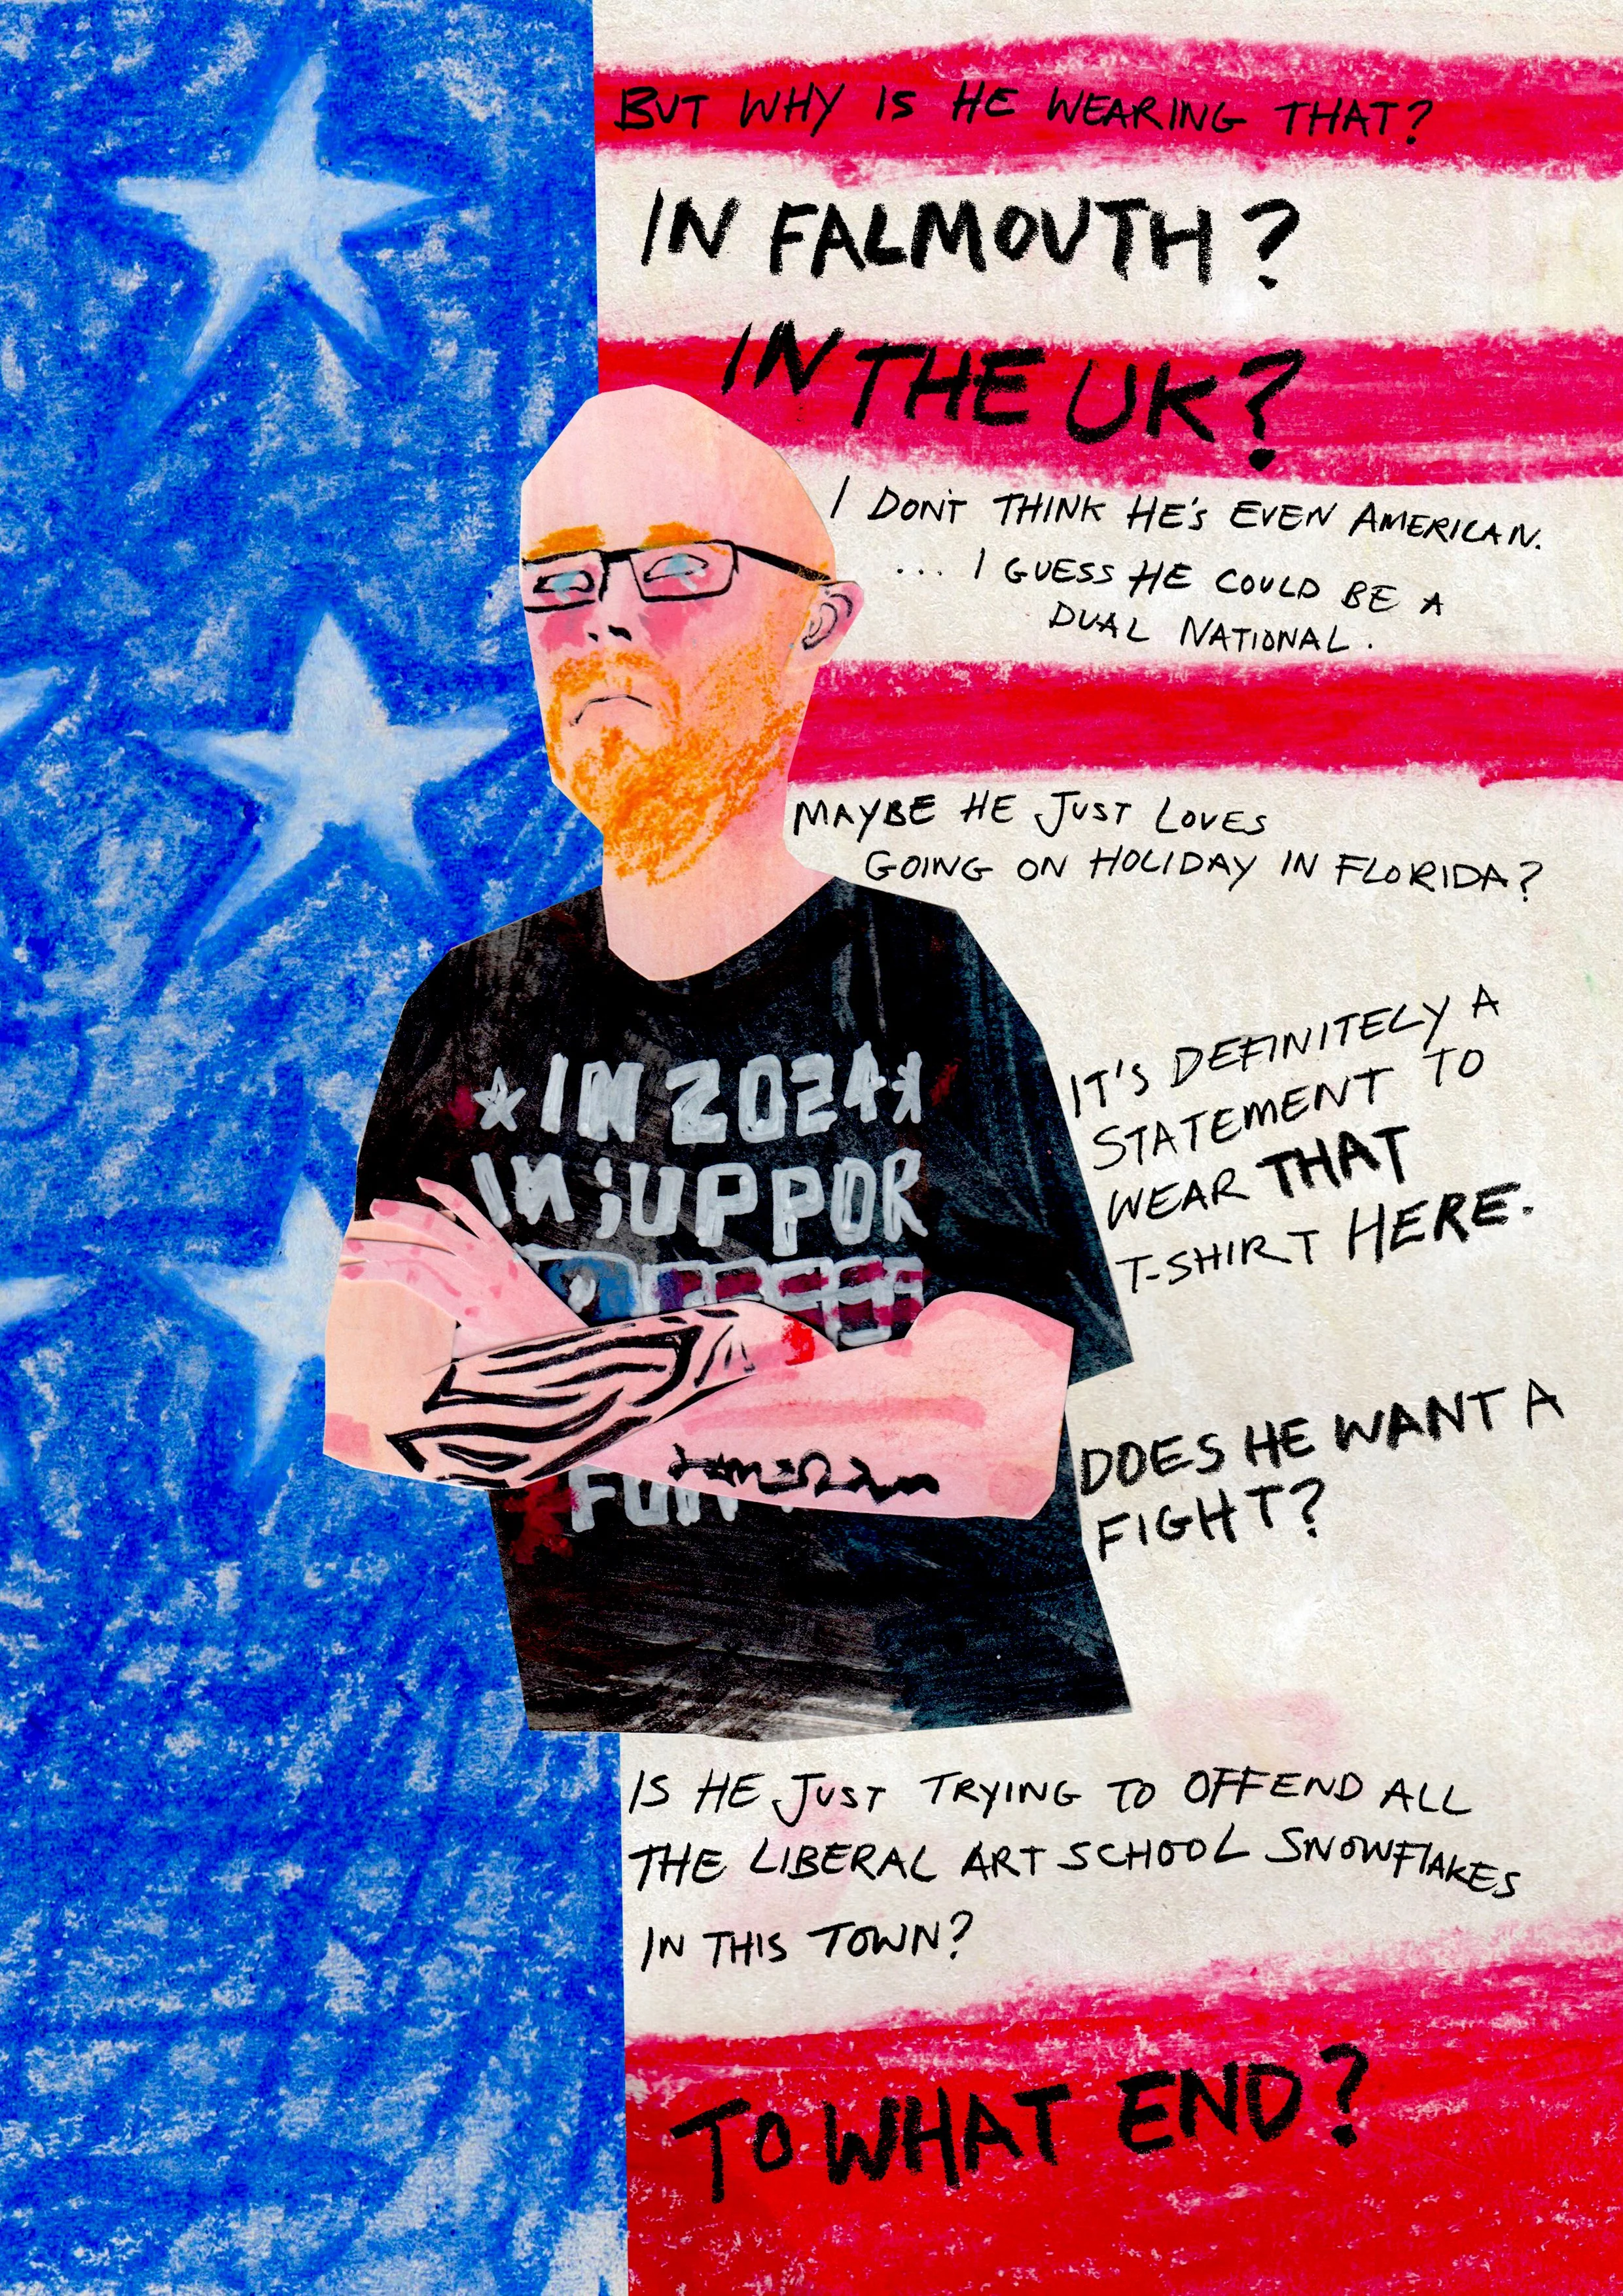 BUT WHY IS HE WEARING THAT?
IN FALMOUTH?
IN THE UK?
I DON'T THINK HE'S EVEN AMERICAN.
... I GUESS HE COULD BE A
DUAL NATIONAL.
MAYBE HE JUST LOVES
GOING ON HOLIDAY IN FLORIDA?
IN 2024
IN SUPPOR
IT'S DEFINITELY A
STATEMENT TO
WEAR THAT
T-SHIRT HERE.
DOES HE WANT A
FIGHT?
IS HE JUST TRYING TO OFFEND ALL
THE LIBERAL ART SCHOOL SNOWFLAKES
IN THIS TOWN?
TO WHAT END?